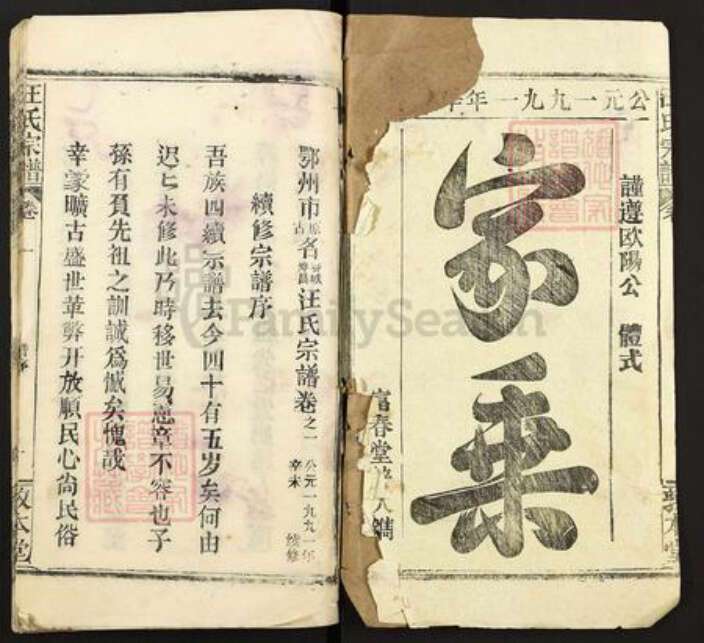 公元一九九一年
謹遵欧陽公 體式
家乘
富春堂
鐫
汪氏宗譜
鄂州市原名古壽昌汪氏宗譜卷之一 公元一九九一年辛未續修
續修宗譜序
吾族四續宗譜去今四十有五岁矣何由
迟七未修此乃時移世易憲章不容也子
孫有負先祖之訓誡為憾矣愧哉
幸蒙曠古盛世革弊开放順民心尚民俗
汪氏宗譜 卷一
敦本堂
FamilySearch